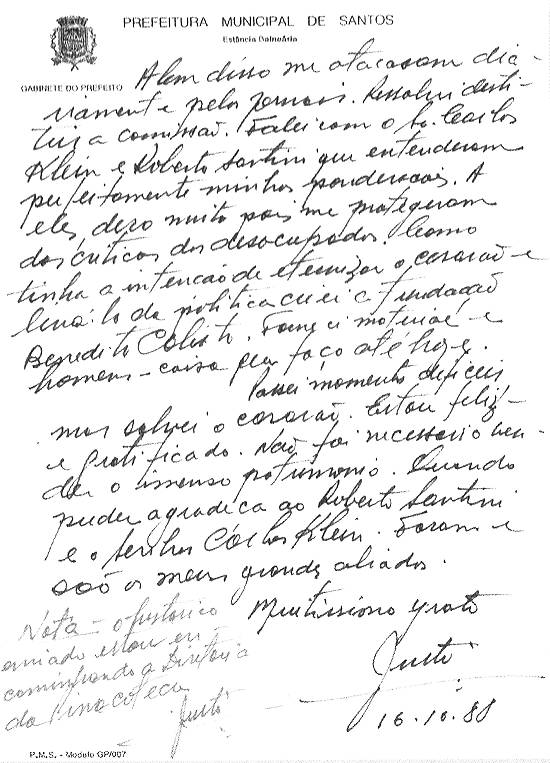 PREFEITURA MUNICIPAL DE SANTOS
Estância Balneária
GABINETE DO PREFEITO
Alem disso me atacavam dia-
riamente pelos jornais. Resolvi desti-
tuir a comissão. Falei com o Sr. Carlos
Klein e Roberto Santini que entenderam
perfeitamente minhas ponderacões. A
eles devo muito pois me protegeram
das críticas dos desocupados. Como
tinha a intenção de eternizar o casarão e
livrá-lo da política criei a Fundação
Benedito Calixto. Forneci material e
homens - coisa que faço até hoje.
Passei momentos dificeis
mas salvei o casarão. Estou feliz
e gratificado. Não foi necessario ven-
der o imenso patrimonio. Quando
puder agradeça ao Roberto Santini
e o Senhor Carlos Klein. Foram e
são os meus grandes aliados.
Muitissimo grato
Justo
16.10.88
Nota - o historico
enviado estou en-
caminhando a Diretoria
da Pinacoteca
Justo
P.M.S. - Modelo GP/007